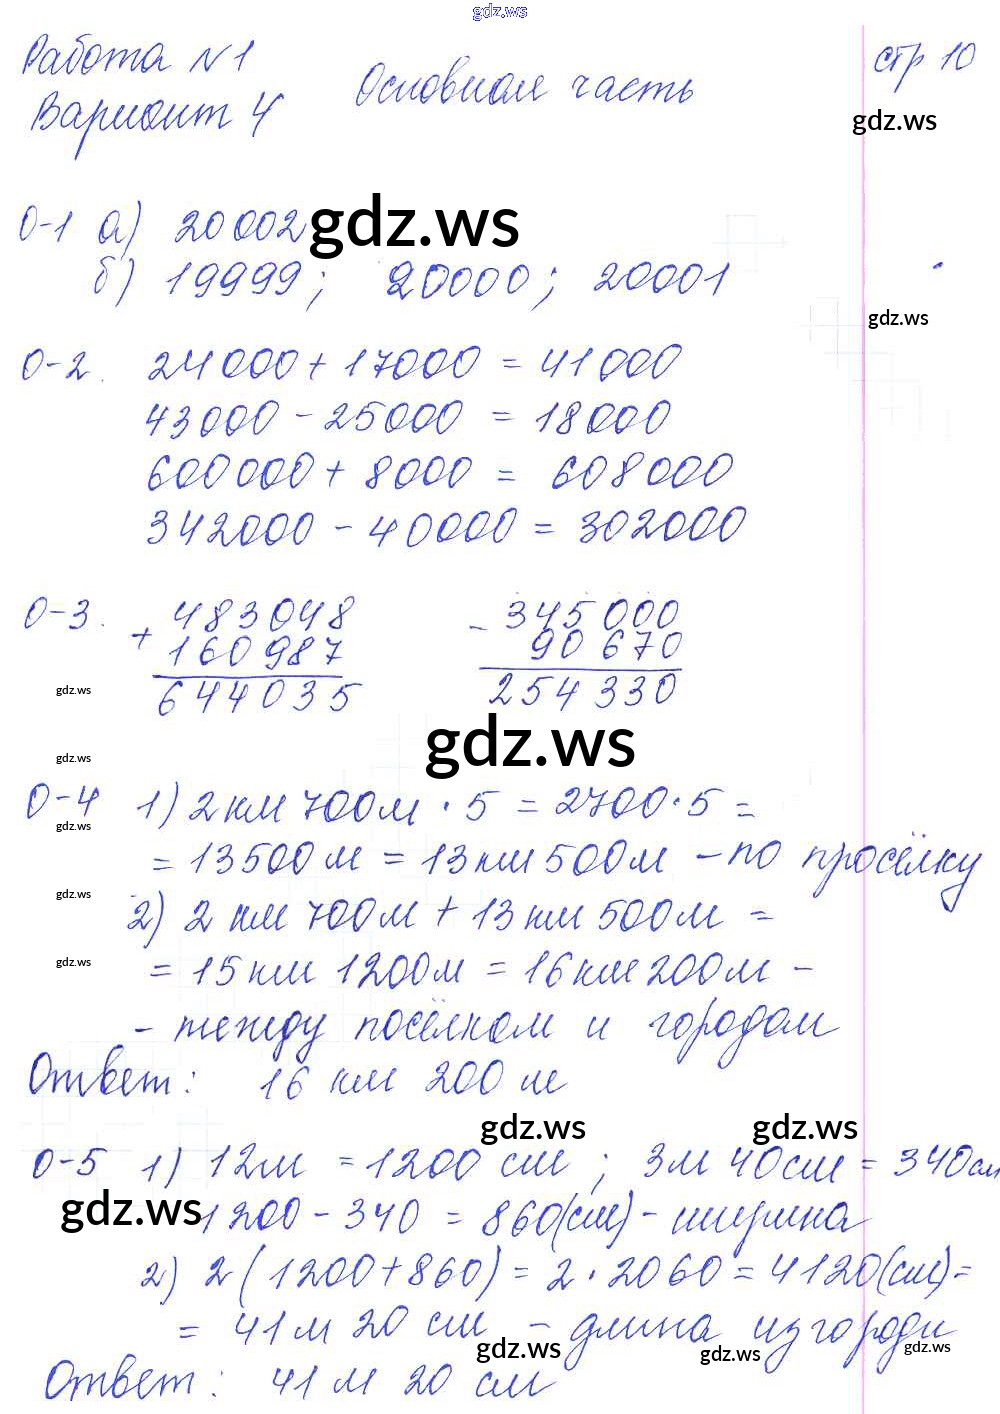 gdz.ws
Работа №1
стр 10
Вариант 4
Основная часть
gdz.ws
О-1 а) 20002
gdz.ws
б) 19999; 20000; 20001
gdz.ws
О-2. 24000 + 17000 = 41000
43000 - 25000 = 18000
600000 + 8000 = 608000
342000 - 40000 = 302000
О-3. + 483048 - 345000
160987 90670
gdz.ws 644035 254330
gdz.ws
gdz.ws
О-4 1) 2 км 700 м · 5 = 2700 · 5 =
gdz.ws
= 13500 м = 13 км 500 м - по просёлку
gdz.ws
2) 2 км 700 м + 13 км 500 м =
gdz.ws
= 15 км 1200 м = 16 км 200 м -
- между посёлком и городом
Ответ: 16 км 200 м
gdz.ws gdz.ws
О-5 1) 12 м = 1200 см; 3 м 40 см = 340 см
gdz.ws
1200 - 340 = 860 (см) - ширина
2) 2 (1200 + 860) = 2 · 2060 = 4120 (см) =
= 41 м 20 см - длина изгороди
gdz.ws gdz.ws gdz.ws
Ответ: 41 м 20 см